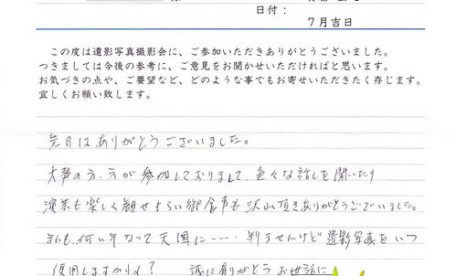 日付：
７月吉日
この度は遺影写真撮影会に、ご参加いただきありがとうございました。
つきましては今後の参考に、ご意見をお聞かせいただければと思います。
お気づきの点や、ご要望など、どのような事でもお寄せいただきたく存じます。
宜しくお願い致します。
先日はありがとうございました。
大勢の方々が参加しておりまして、色々な話しを聞いたり
演芸も楽しく観せもらい 食事も沢山頂きありがとうございました。
私も何い年なって天国に……判ませんけど遺影写真をいつ
使用しますかね？ 誠に有がとう お世話に